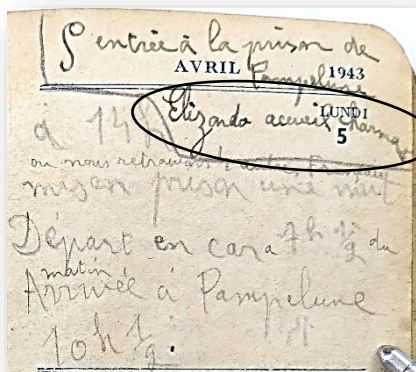 entrée à la prison de
Pampelune
AVRIL 1943
Elizondo accueil charmant
LUNDI
5
à 14 h
où nous retrouvons d'autres Français
mis en prison une nuit
Départ en car à 7 h 1/2 du
matin
Arrivée à Pampelune
10 h 1/2.